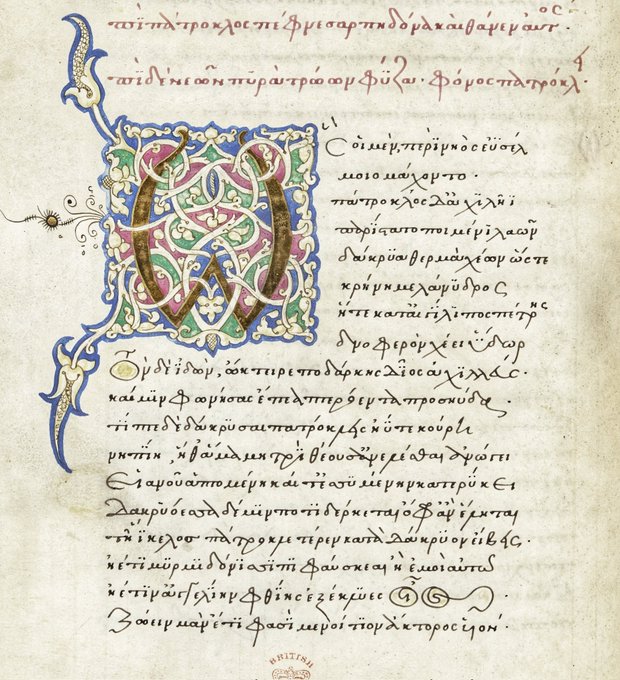 πῖ πάτροκλος πέφνε σαρπηδόνα καὶ θάνεν αὐτός.
πῖ δὲ νεῶν πυρὰ τρώων φύζα· φόνος πατρόκλ
Ὣς οἱ μὲν περὶ νηὸς ἐϋσέλ
μοιο μάχοντο·
πάτροκλος δ' ἀχιλῆϊ
παρίστατο ποιμένι λαῶν
δάκρυα θερμὰ χέων ὥς τε
κρήνη μελάνυδρος
ἥτε κατ' αἰγίλιπος πέτρης
δνοφερὸν χέει ὕδωρ
Τὸν δὲ ἰδὼν, ὤκτειρε ποδάρκης δῖος ἀχιλλεύς·
καί μιν φωνήσας ἔπεα πτερόεντα προσηύδα·
τίπτε δεδάκρυσαι πατρόκλεις ἠΰτε κούρη
νηπίη ἥ θ' ἅμα μητρὶ θέουσ' ἀνελέσθαι ἀνώγει
Εἱανοῦ ἁπτομένη καί τ' ἐσσυμένην κατερύκει
δακρυόεσσα δέ μιν ποτιδέρκεται ὄφρ' ἀνέληται
τῇ ἴκελος πάτροκλε τέρεν κατὰ δάκρυον εἴβεις·
ἠέ τι μυρμιδόνεσσι πιφαύσκεαι ἢ ἐμοὶ αὐτῷ
ἠέ τιν' ἀγγελίην φθίης ἐξέκλυες οἶος
Ζώειν μὰν ἔτι φασὶ μενοίτιον ἄκτορος υἱόν·
BRITISH